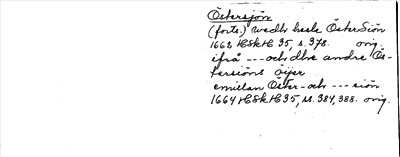 Östersjön
(forts.) wedh heele ÖsterSiön
1662 HSH 35, s. 378. orig.
ifrå --- och dhe andre Ös-
tersiöns öijer
emillan Öster- och --- siön
1664 HSH 35, ss. 384, 388. orig.